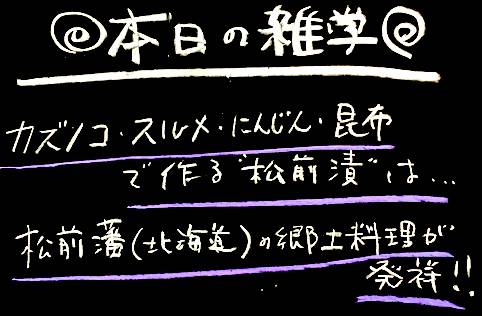 ◎本日の雑学◎
カズノコ・スルメ・にんじん・昆布
で作る"松前漬"は…
松前藩(北海道)の郷土料理が
発祥!!